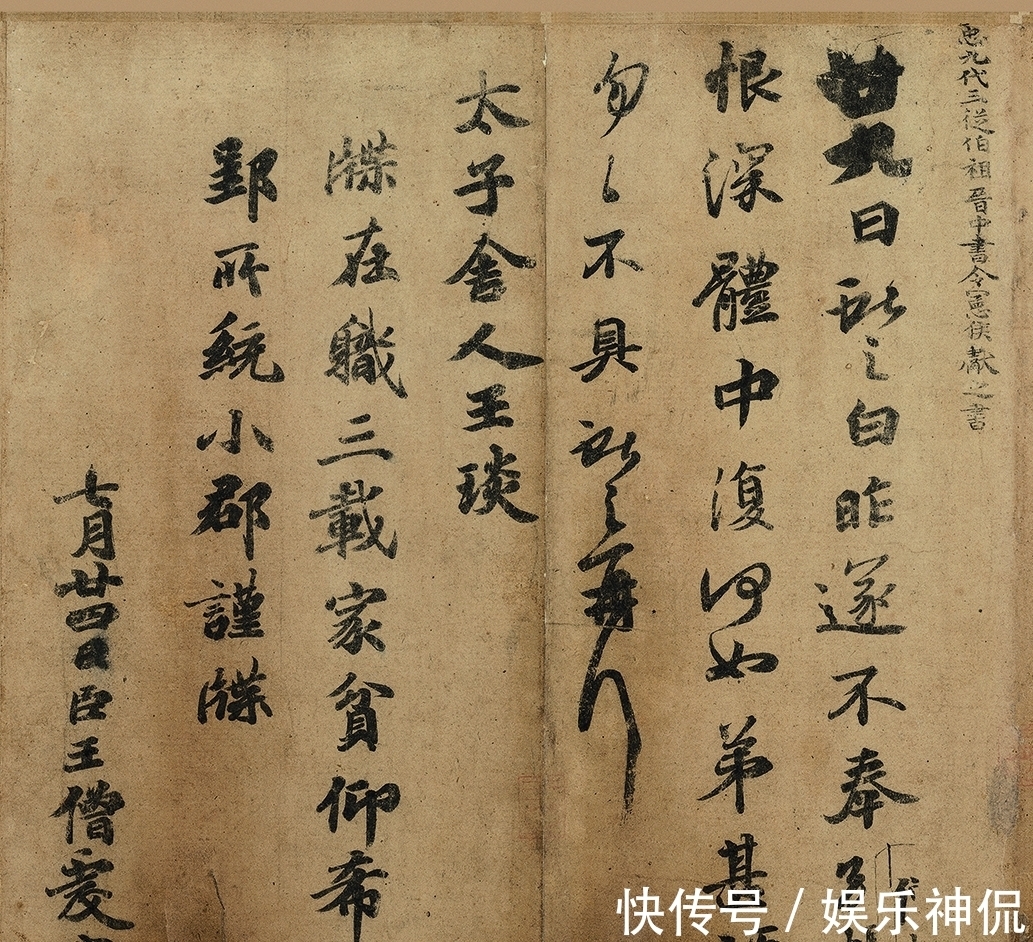 𢘑九代三從伯祖晉中書令憲侯獻之書
廿九日獻之白昨遂不奉
恨深體中復何如弟甚
匆〻不具獻之再拜
太子舍人王琰
牒在職三載家貧仰希
郢所統小郡謹牒
七月廿四日臣王僧虔
快传号 / 娱乐神侃